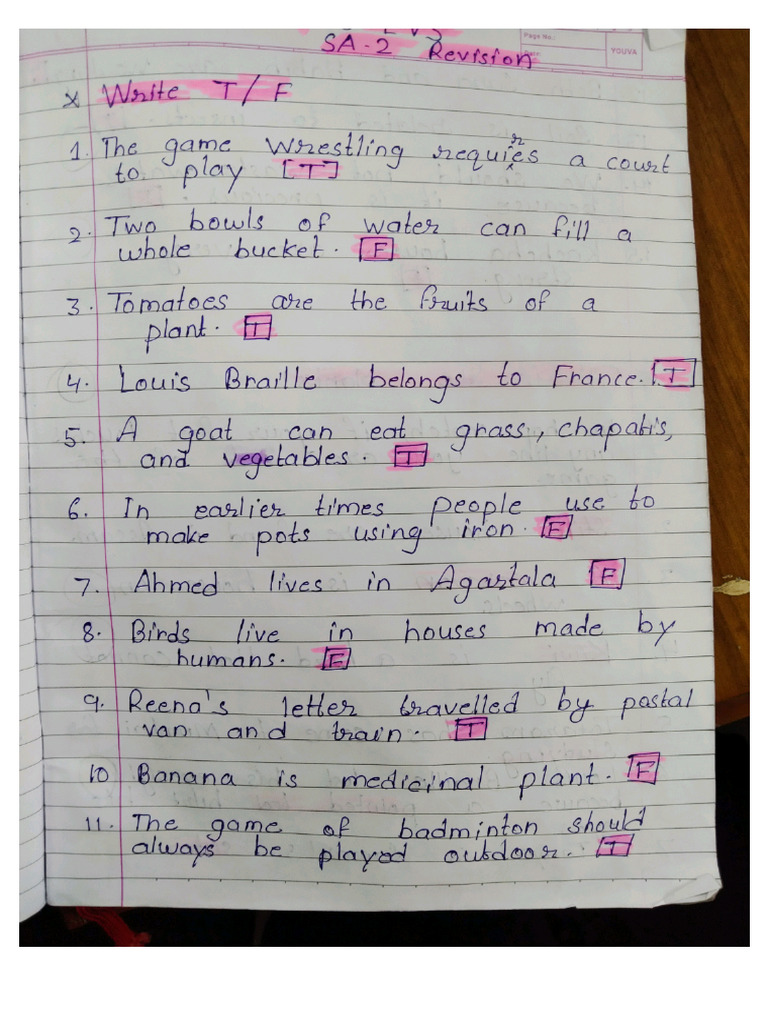 Page No.:
Date:
YOUVA
SA-2 Revision
x Write T/F
1. The game wrestling requires a court
to play [T]
2. Two bowls of water can fill a
whole bucket. [F]
3. Tomatoes are the fruits of a
plant. [T]
4. Louis Braille belongs to France. [T]
5. A goat can eat grass, chapatis,
and vegetables. [T]
6. In earlier times people use to
make pots using iron. [F]
7. Ahmed lives in Agartala [F]
8. Birds live in houses made by
humans. [F]
9. Reena's letter travelled by postal
van and train. [T]
10 Banana is medicinal plant. [F]
11. The game of badminton should
always be played outdoor. [T]